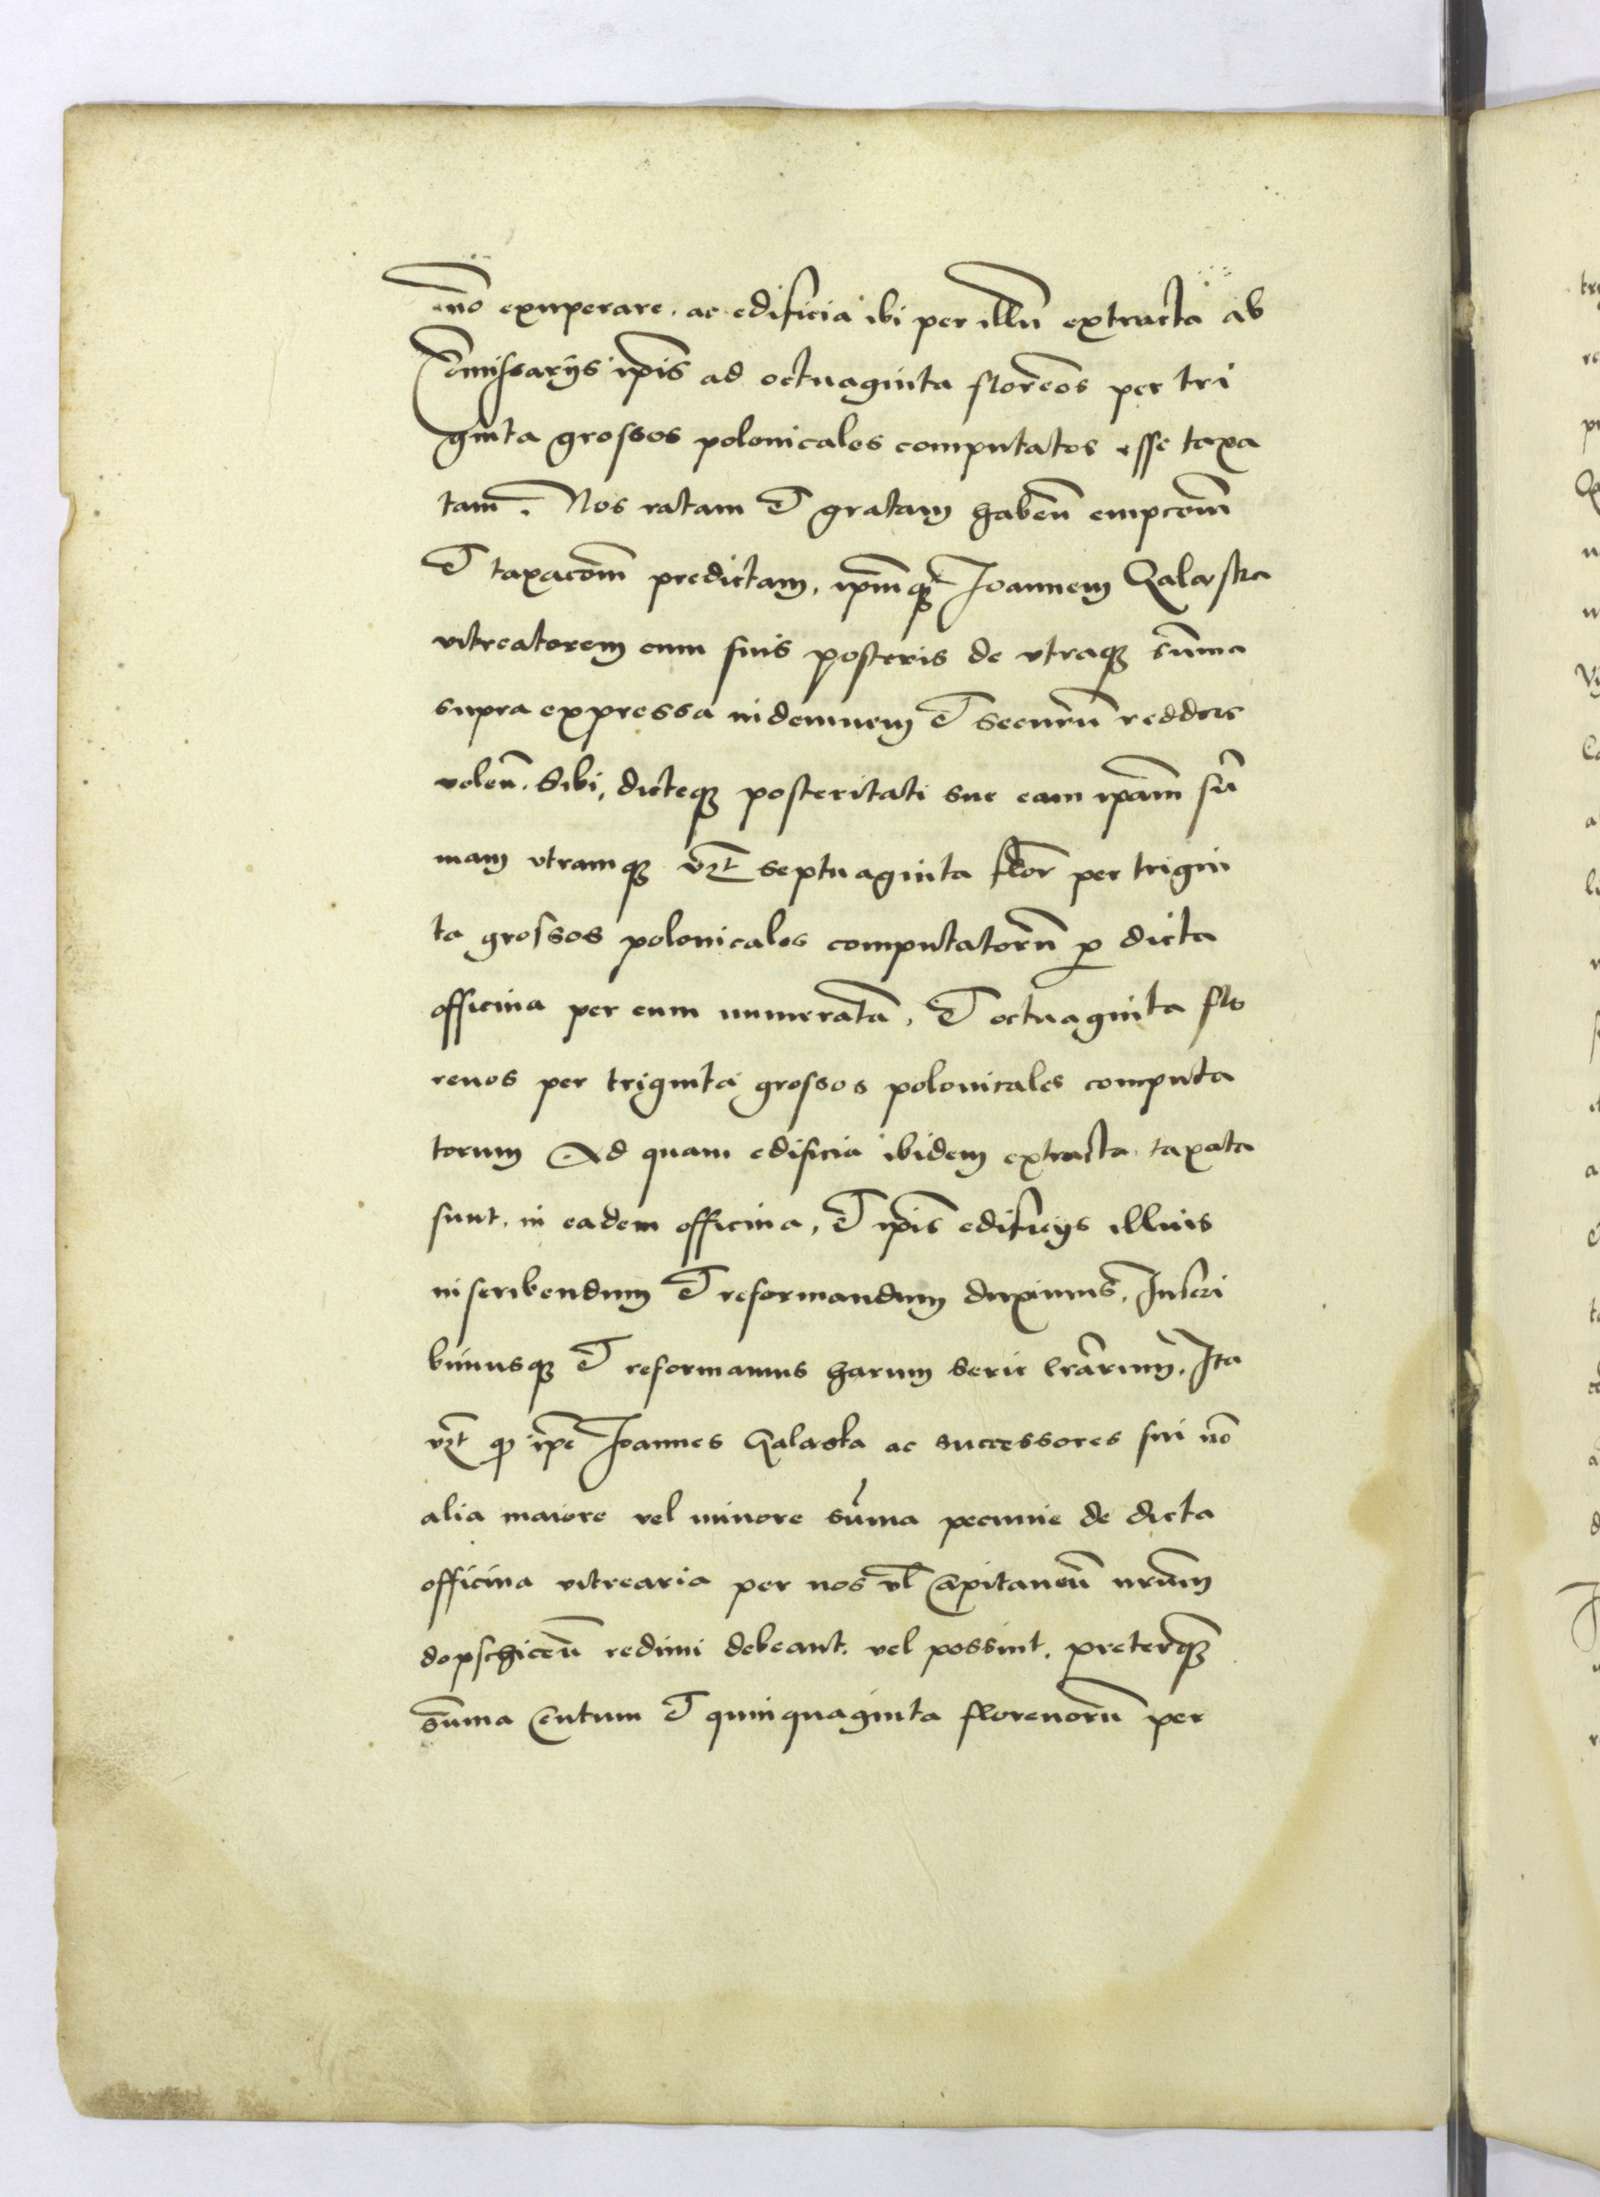 nō exuperare. ac edificia ibi per illū extructa ab
Cōmissarijs ip̄is ad octuaginta florēos per tri
ginta grossos polonicales computatos esse taxa
tam. Nos ratam et gratam habeñ empcōm̄
et taxacōm̄ predictam, ip̄mq̨ Joannem Galaska
vitreatorem cum suis posteris de vtraq̨ sum̄a
supra expressa indemnem et securū reddere
voleñ. Sibi, dicteq̨ posteritati sue eam ip̄am sū
mam vtramq̨ vz̄t septuaginta flor̄ per trigin
ta grossos polonicales computatorū p dicta
officina per eum numeratā, et octuaginta flo
renos per triginta grossos polonicales computa
torum Ad quam edificia ibidem extracta taxata
sunt. in eadem officina, et ip̄is edificijs illius
inscribendum et reformandum duximus, Inscri
bimusq̨ et reformamus harum serie lr̄arum, Ita
vz̄t q̨ ip̄e Joannes Galaska ac successores sui nō
alia maiore vel minore sum̄a pecunie de dicta
officina vitrearia per nos vl̄ Capitaneū nr̄um
dopschiceñ redimi debeant. vel possint. preterq̨
sum̄a Centum et quinquaginta florenorū per